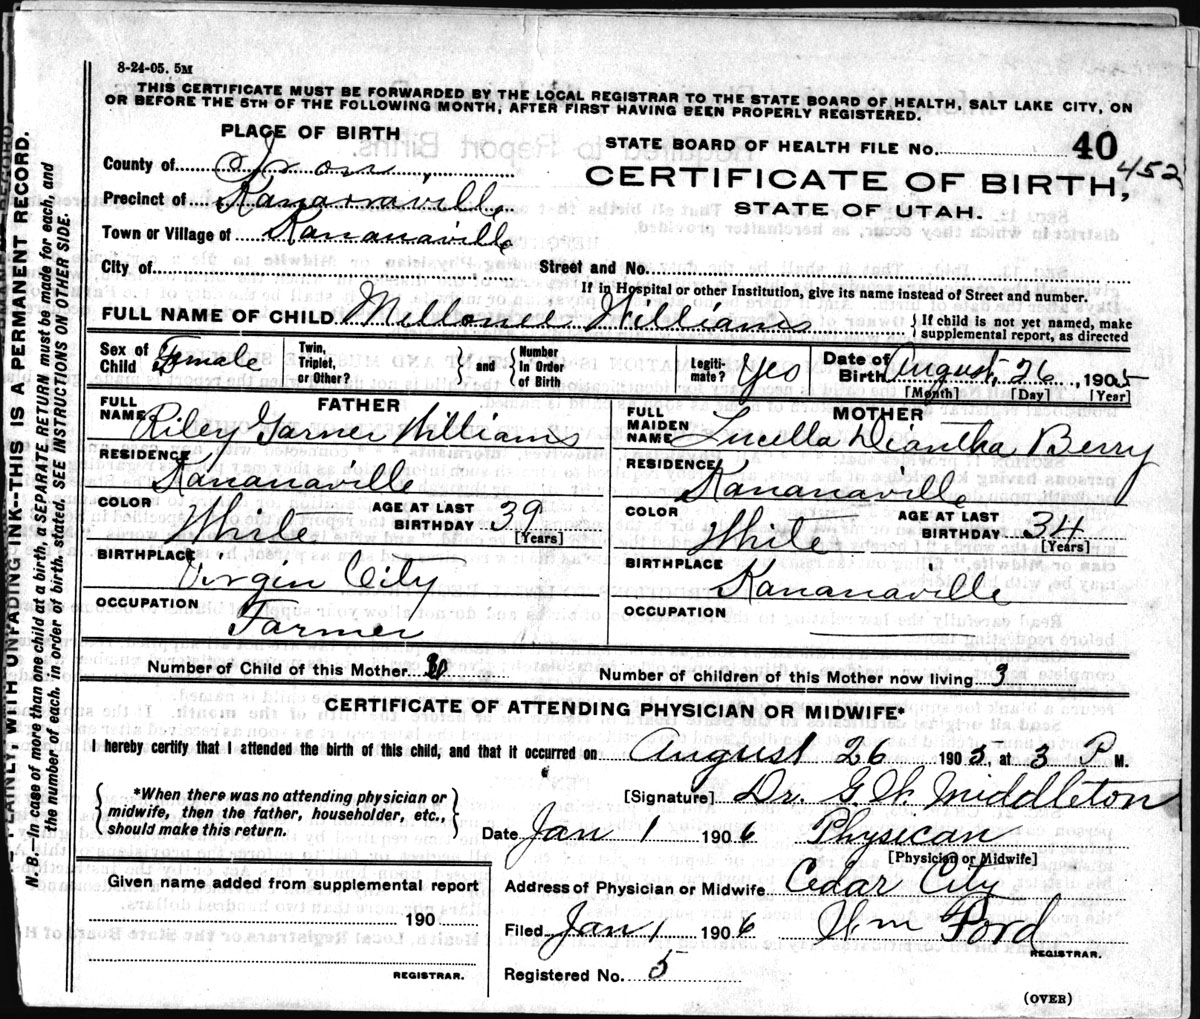 8-24-05. 5M
THIS CERTIFICATE MUST BE FORWARDED BY THE LOCAL REGISTRAR TO THE STATE BOARD OF HEALTH, SALT LAKE CITY, ON
OR BEFORE THE 5TH OF THE FOLLOWING MONTH, AFTER FIRST HAVING BEEN PROPERLY REGISTERED.
PLACE OF BIRTH
STATE BOARD OF HEALTH FILE No. 40
452
County of Iron,
CERTIFICATE OF BIRTH,
Precinct of Kanarraville
STATE OF UTAH.
Town or Village of Kananaville
City of
Street and No.
If in Hospital or other Institution, give its name instead of Street and number.
FULL NAME OF CHILD Mellonee Williams
{ If child is not yet named, make supplemental report, as directed
Sex of Child Female
Twin, Triplet, or Other?
} and { Number In Order of Birth
Legitimate? Yes
Date of Birth August, 26, 1905
[Month] [Day] [Year]
FATHER
FULL NAME Riley Garner Williams
RESIDENCE Kananaville
COLOR White
AGE AT LAST BIRTHDAY 39 [Years]
BIRTHPLACE Virgin City
OCCUPATION Farmer
MOTHER
FULL MAIDEN NAME Lucella Diantha Berry
RESIDENCE Kananaville
COLOR White
AGE AT LAST BIRTHDAY 34 [Years]
BIRTHPLACE Kananaville
OCCUPATION
Number of Child of this Mother
Number of children of this Mother now living 9
CERTIFICATE OF ATTENDING PHYSICIAN OR MIDWIFE*
I hereby certify that I attended the birth of this child, and that it occurred on August 26 1905, at 3 P M.
{ *When there was no attending physician or midwife, then the father, householder, etc., should make this return. }
[Signature] Dr. G. W. Middleton
Date Jan 1 1906 Physican
[Physician or Midwife]
Given name added from supplemental report
190
REGISTRAR.
Address of Physician or Midwife Cedar City
Filed Jan 1 1906 Wm Ford
REGISTRAR.
Registered No. 5
(OVER)
PLAINLY WITH UNFADING INK--THIS IS A PERMANENT RECORD.
N. B.--In case of more than one child at a birth a SEPARATE RETURN must be made for each, and
the number of each, in order of birth, stated. SEE INSTRUCTIONS ON OTHER SIDE.